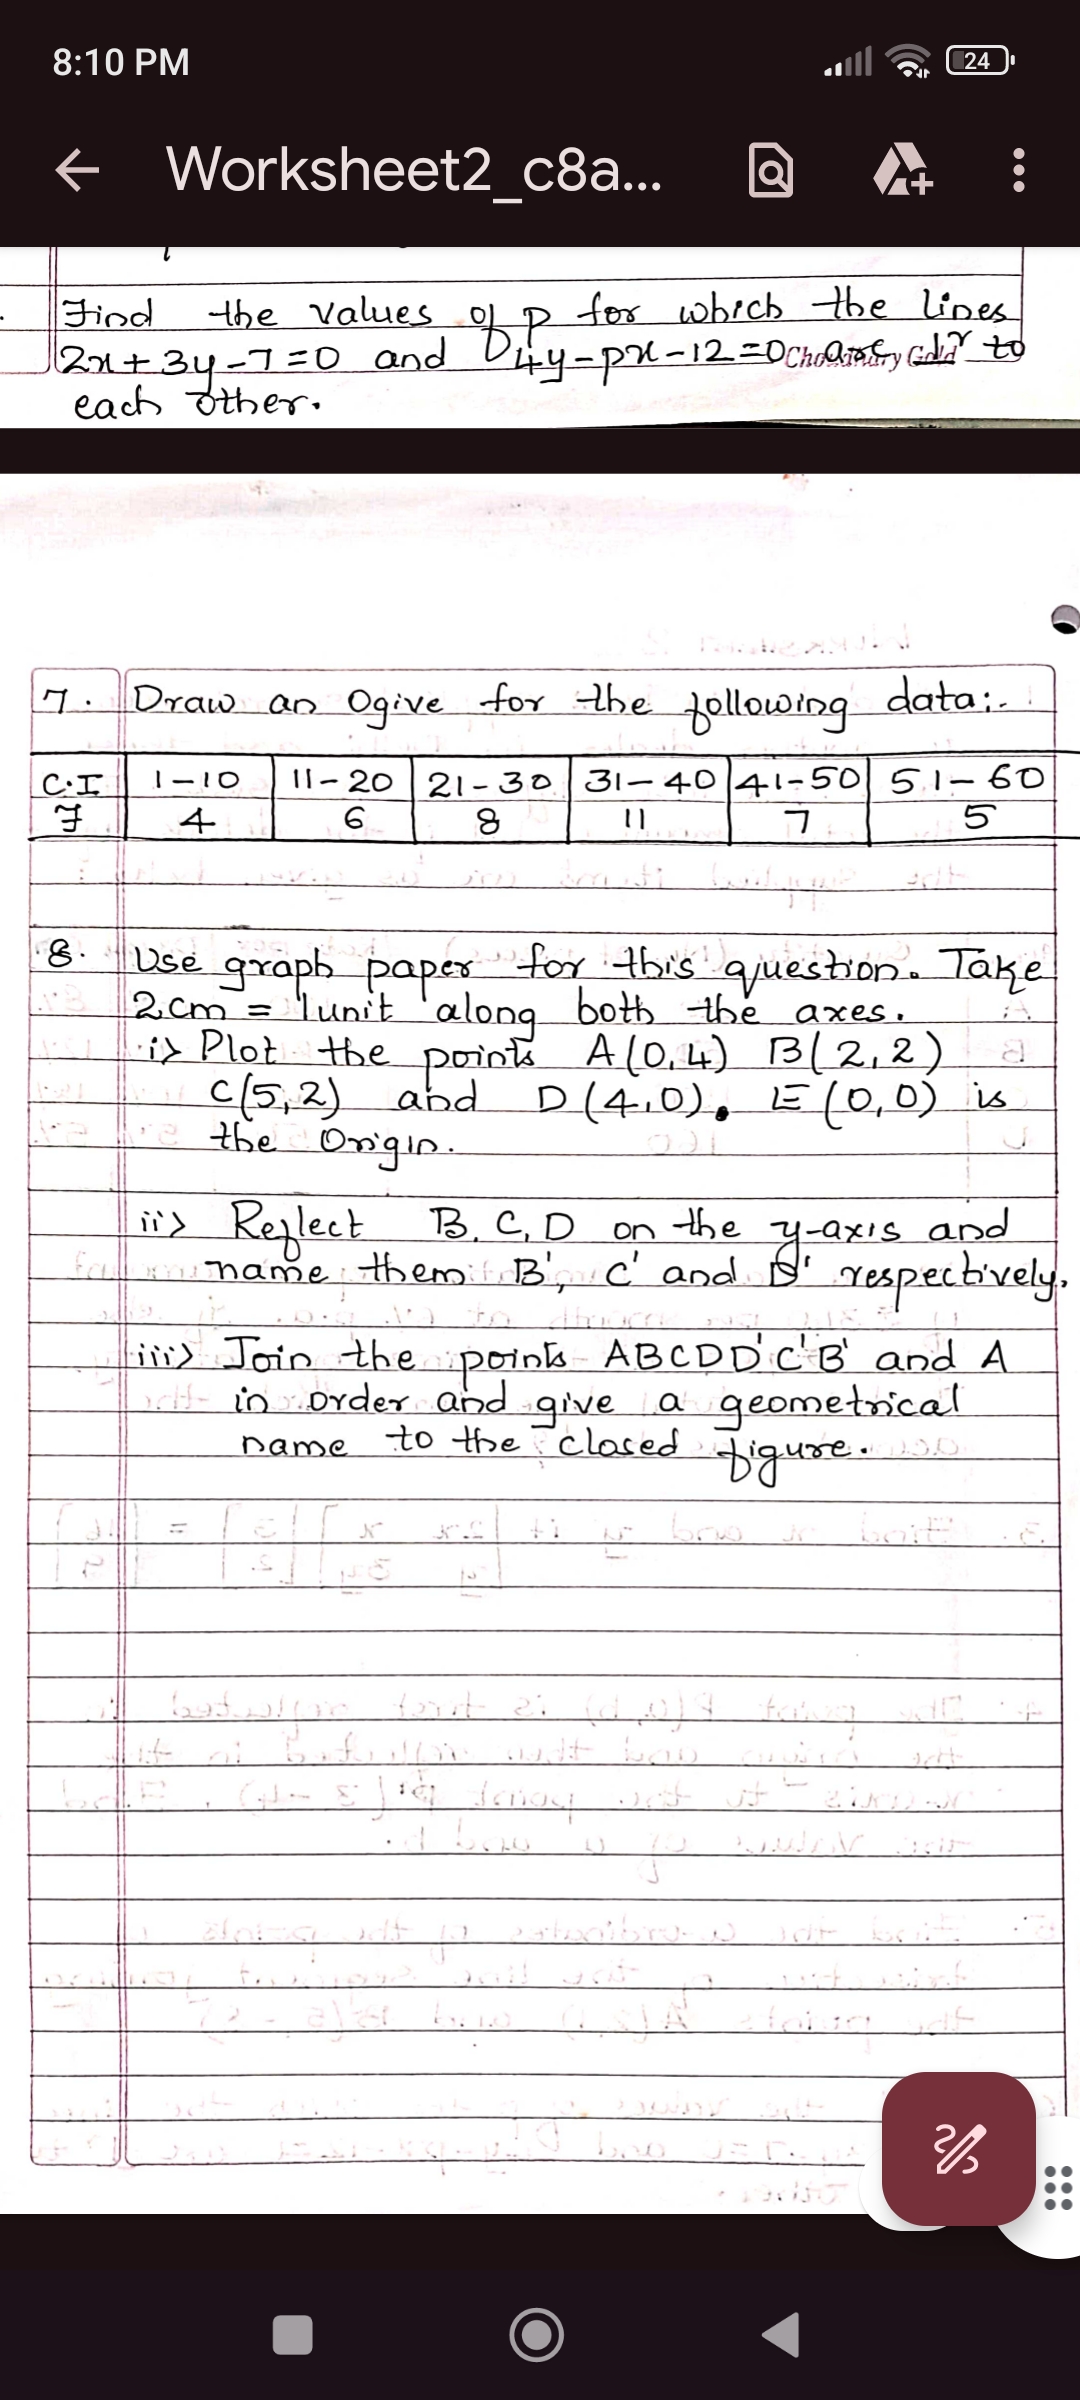 8:10 PM
24
Worksheet2_c8a...
Find the values of p for which the lines
2x+3y-7=0 and 4y-px-12=0 are ⊥r to
Choudhary Gold
each other.
7. Draw an Ogive for the following data:-
C.I 1-10 11-20 21-30 31-40 41-50 51-60
F 4 6 8 11 7 5
8. Use graph paper for this question. Take
2cm = 1unit along both the axes.
i> Plot the points A(0,4) B(2,2)
C(5,2) and D(4,0). E(0,0) is
the Origin.
ii> Reflect B, C, D on the y-axis and
name them B', C' and D' respectively.
iii> Join the points ABCDD'C'B' and A
in order and give a geometrical
name to the closed figure.